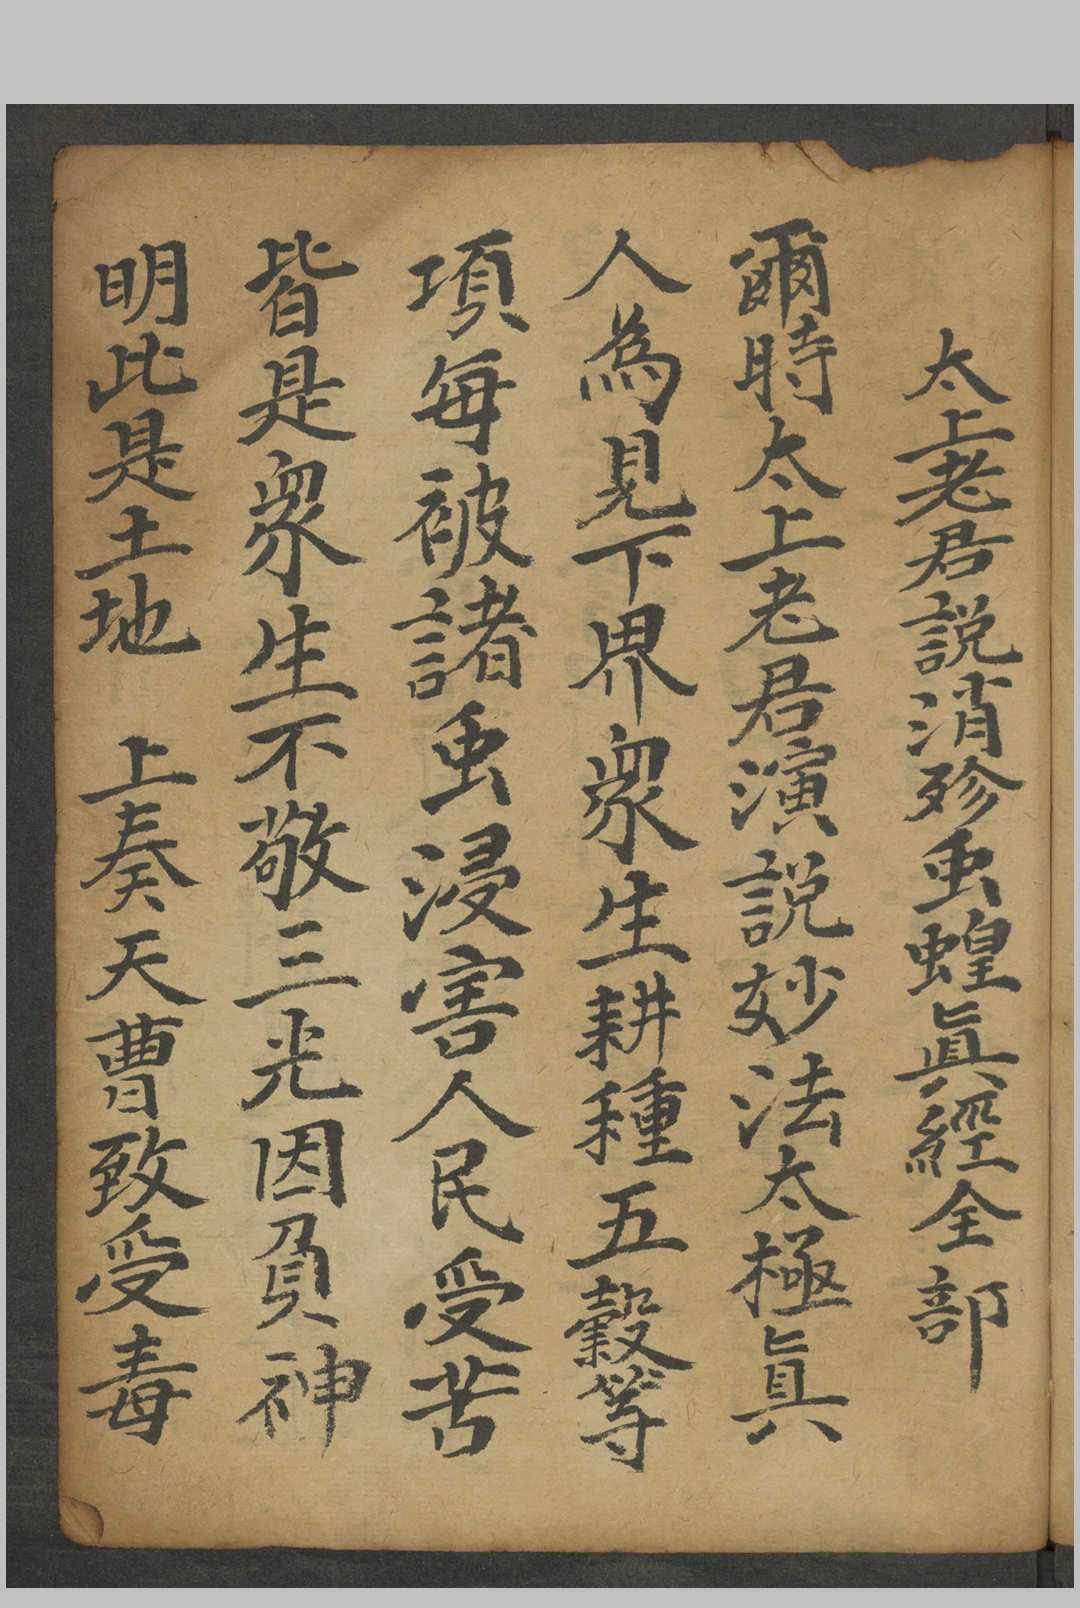 太上老君説消殄虫蝗眞經全部
爾時太上老君演説妙法太極眞
人為見下界衆生耕種五穀等
項每被諸虫浸害人民受苦
皆是衆生不敬三光因負神
明此是土地 上奏天曹致受毒